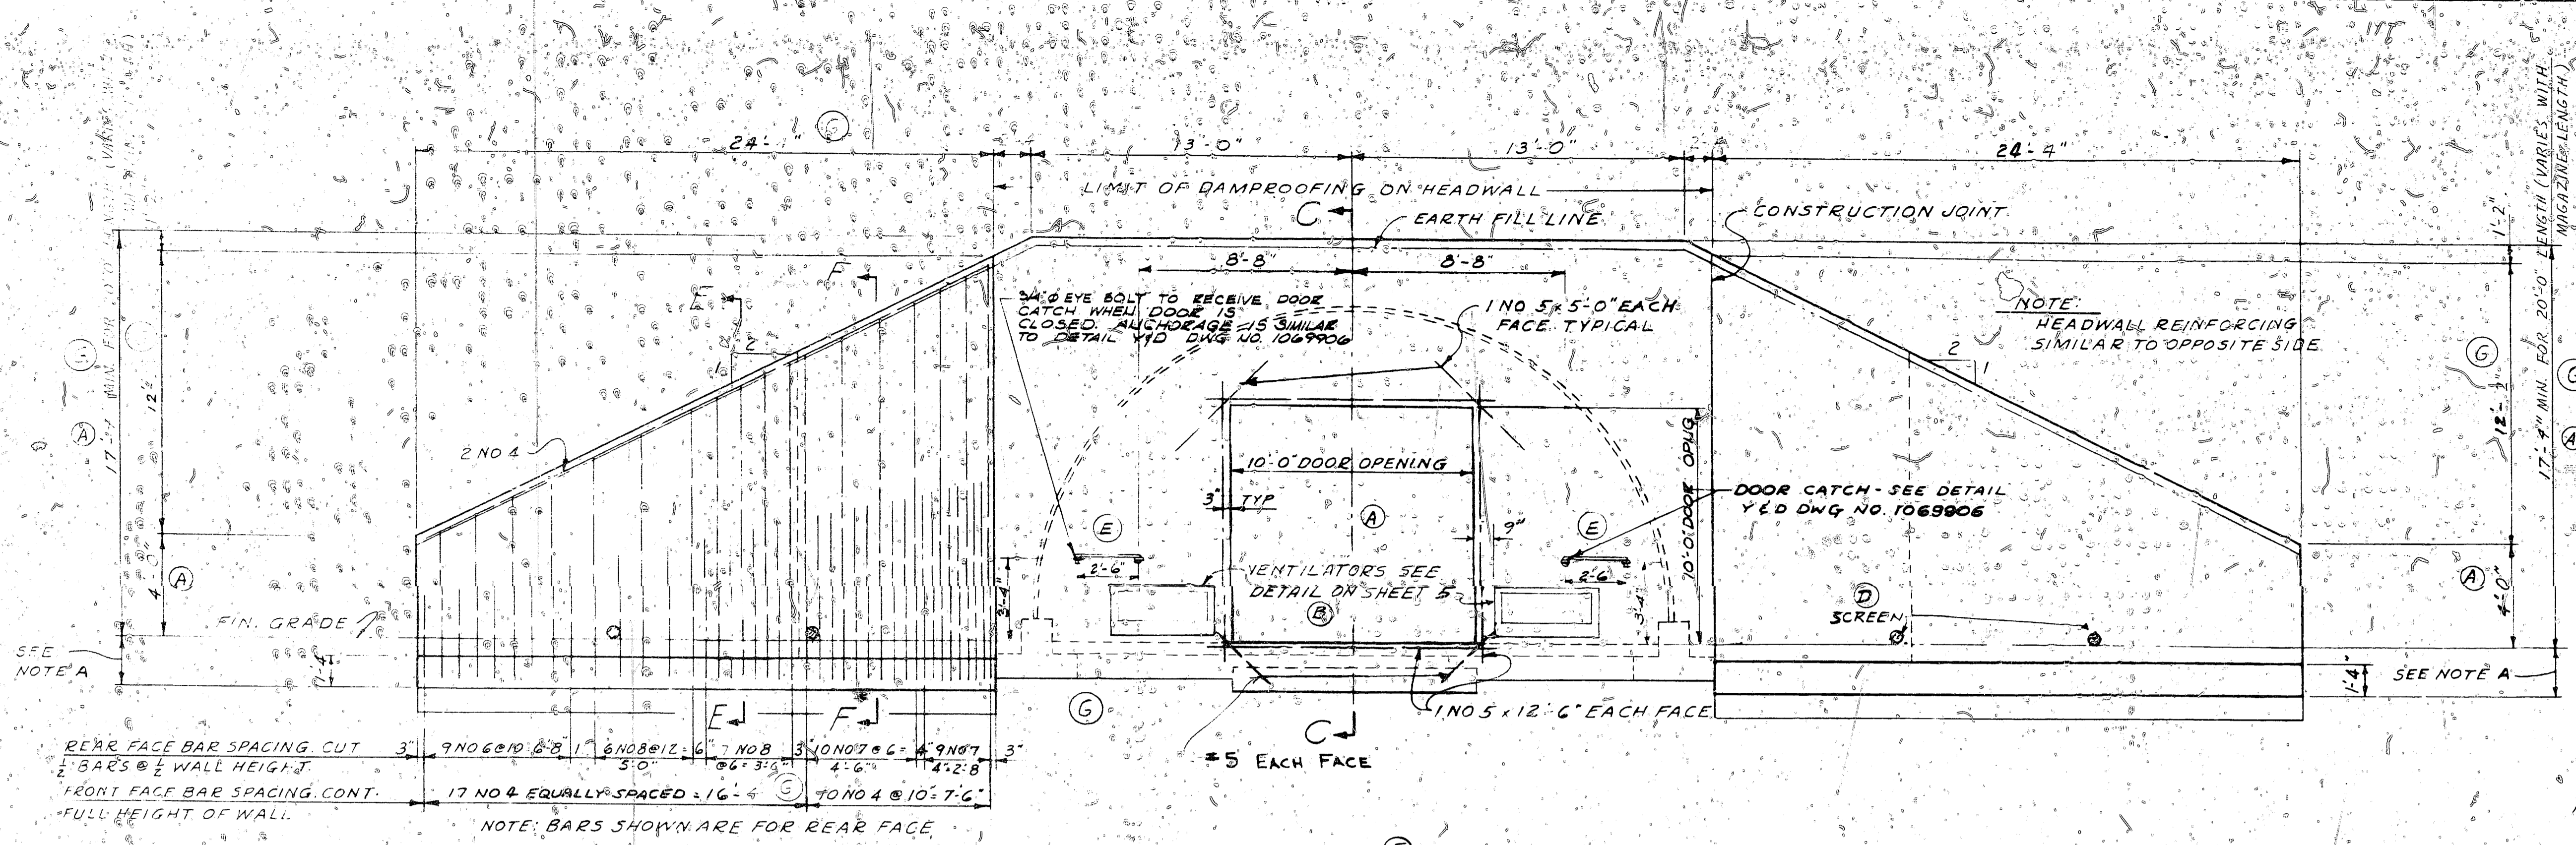 24'-
13'-0"
13'-0"
24'-4"
G
LIMIT OF DAMPROOFING ON HEADWALL
C
EARTH FILL LINE
CONSTRUCTION JOINT
8'-8"
8'-8"
F
E
3/4"Φ EYE BOLT TO RECEIVE DOOR
CATCH WHEN DOOR IS
CLOSED. ANCHORAGE IS SIMILAR
TO DETAIL Y&D DWG NO. 1069906
1 NO 5 x 5'-0" EACH
FACE TYPICAL
NOTE:
HEADWALL REINFORCING
SIMILAR TO OPPOSITE SIDE
2
1
2
1
1'-2"
G
12'-2"
17'-4" MIN. FOR 20'-0" LENGTH (VARIES WITH
MAGAZINE LENGTH)
17'-4 MIN. FOR
A
4'-0"
A
2 NO 4
10'-0" DOOR OPENING
3" TYP
A
9"
10'-0" DOOR OPNG
DOOR CATCH - SEE DETAIL
Y&D DWG NO. 1069906
E
E
2'-6"
2'-6"
3'-4"
3'-4"
VENTILATORS SEE
DETAIL ON SHEET 5
B
D
SCREEN
A
4'-0"
FIN. GRADE
SEE
NOTE A
1'-4
1'-4"
SEE NOTE A
E
F
G
C
1 NO 5 x 12'-6" EACH FACE
#5 EACH FACE
REAR FACE BAR SPACING. CUT
1/2 BARS @ 1/2 WALL HEIGHT.
3" 9 NO 6 @ 10 6'-8" 1" 6 NO 8 @ 12 = 6" 7 NO 8 3" 10 NO 7 @ 6 = 4" 9 NO 7 3"
5'-0" @ 6 = 3'-0" 4'-6" 4'-2'-8
FRONT FACE BAR SPACING. CONT.
FULL HEIGHT OF WALL.
17 NO 4 EQUALLY SPACED = 16'- G 10 NO 4 @ 10 = 7'-6"
NOTE: BARS SHOWN ARE FOR REAR FACE